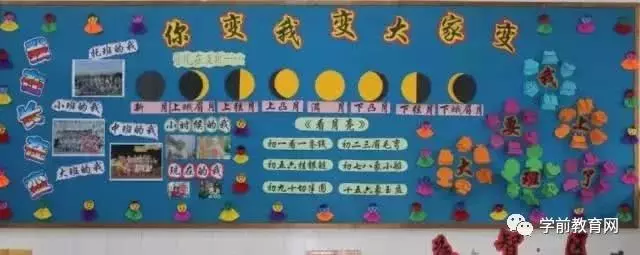 你变我变大家变
托班的我
小班的我
中班的我
大班的我
小时候的我
现在的我
新月
上蛾眉月
上弦月
上凸月
满月
下凸月
下弦月
下蛾眉月
《看月亮》
初一看一条线
初二三眉毛弯
初五六挂银镰
初七八象小船
初九十切半圆
十五六象玉盘
我
要
大
班
了
学前教育网